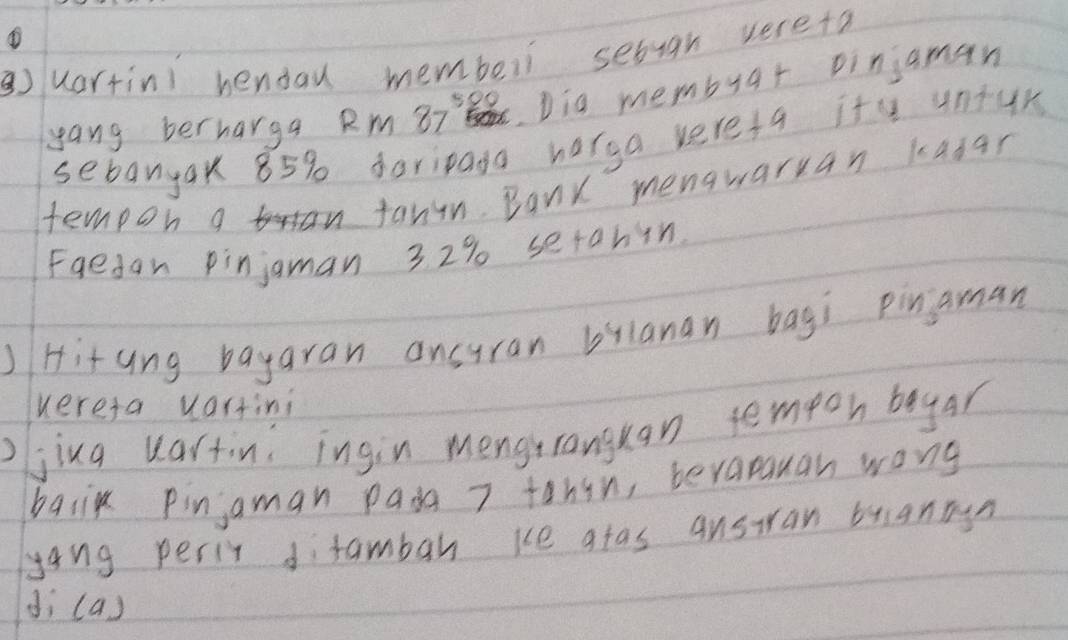 3) Kartini hendak membeli sebuah kereta
yang berharga RM 87 500. Dia membuat pinjaman
sebanyak 85% daripada harga kereta itu untuk
tempoh 9 tahun. Bank menawarkan kadar
Faedah pinjaman 3.2% setahun.
) Hitung bayaran ansuran bulanan bagi pinjaman
kereta Kartini
) jika Kartini ingin mengurangkan tempoh bayar
balik pinjaman pada 7 tahun, berapakah wang
yang perlu ditambah ke atas ansuran bulanannya
di (a)